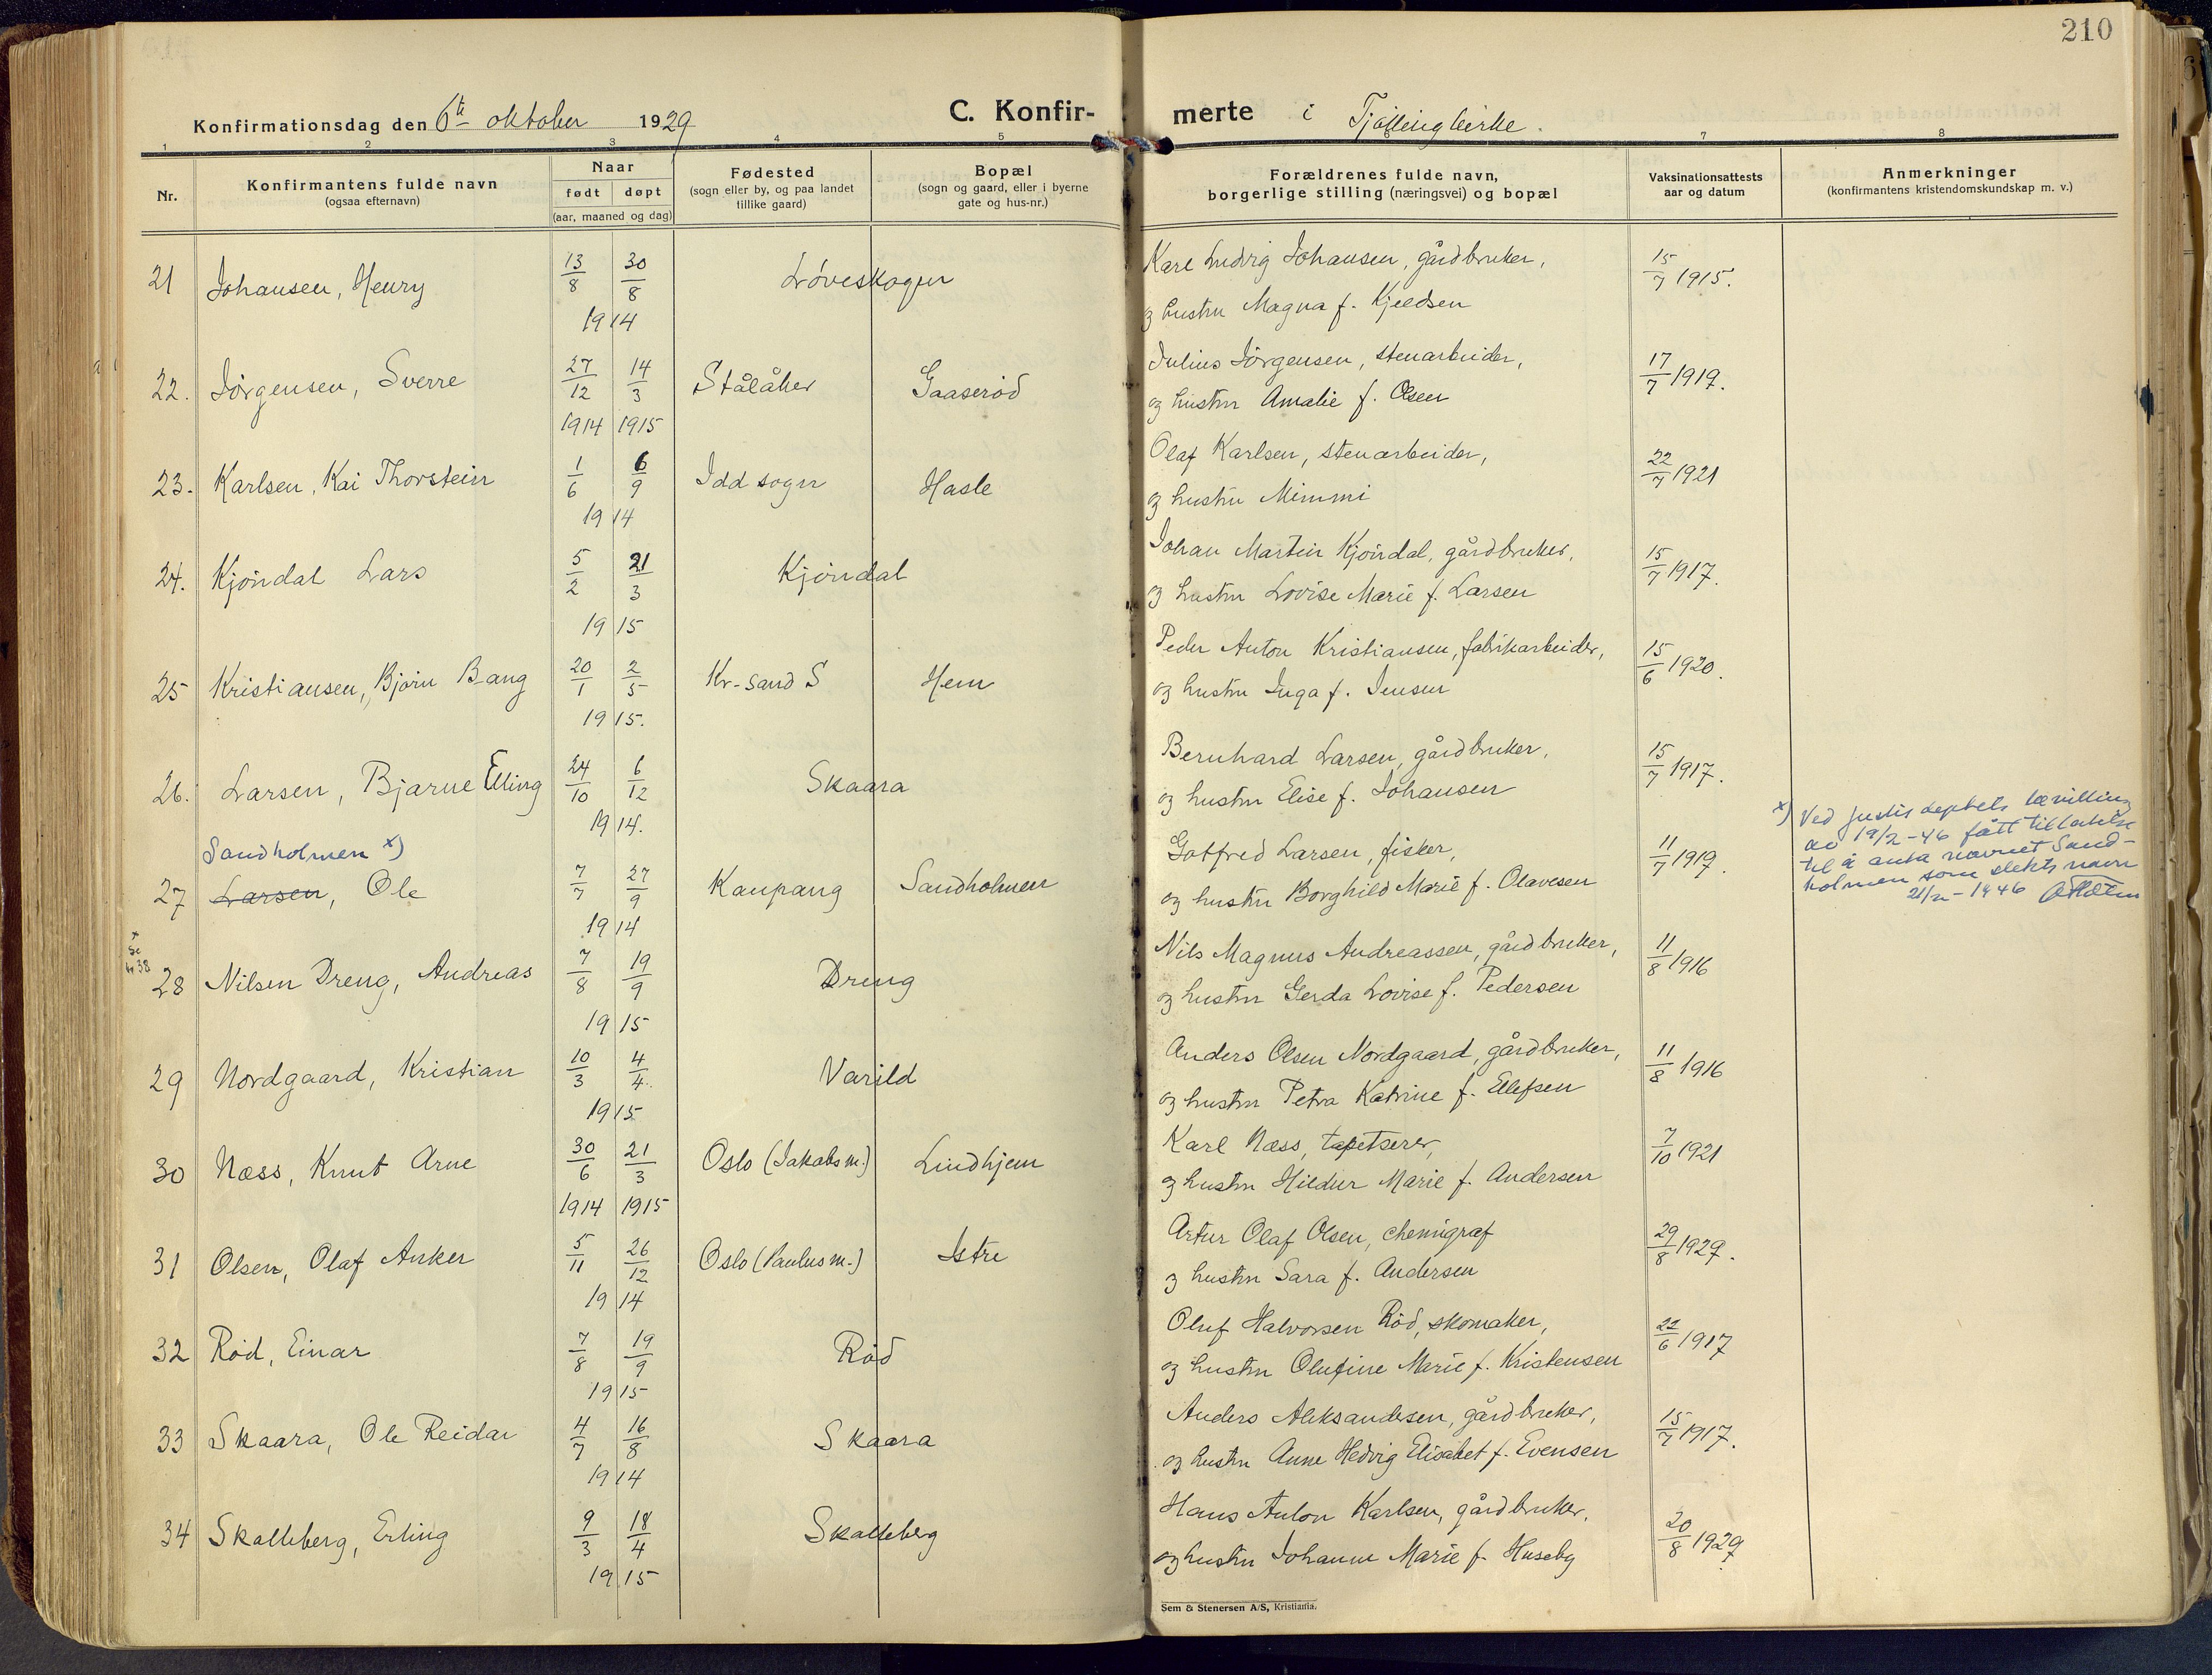 210
Konfirmationsdag den 6te oktober 1929
C. Konfirmerte i Tjølling kirke.
1 2 3 4 5 7 8
Nr.
Konfirmantens fulde navn
(ogsaa efternavn)
Naar
født døpt
(aar, maaned og dag)
Fødested
(sogn eller by, og paa landet
tillike gaard)
Bopæl
(sogn og gaard, eller i byerne
gate og hus-nr.)
Forældrenes fulde navn,
borgerlige stilling (næringsvei) og bopæl
Vaksinationsattests
aar og datum
Anmerkninger
(konfirmantens kristendomskundskap m. v.)
21 Johansen, Henry 13/8 30/8 1914 Løveskogen
Karl Ludvig Johansen, gårdbruker,
og hustru Magna f. Kjeldsen
15/7 1915.
22. Jørgensen, Sverre 27/12 1914 14/3 1915 Ståláker Gaaserød
Julius Jörgensen, stenarbeider,
og hustru Amalie f. Olsen
17/7 1919.
23. Karlsen, Kai Thorstein 1/6 6/9 1914 Idd sogn Hasle
Olaf Karlsen, stenarbeider,
og hustru Mimmi
22/7 1921
24. Kjøndal Lars 5/2 21/3 1915 Kjøndal
Johan Martin Kjøndal, gårdbruker,
og hustru Lovise Marie f. Larsen
15/7 1917.
25 Kristiansen, Bjørn Bang 20/1 2/5 1915. Kr-sand S Hem
Peder Anton Kristiansen, fabrikarbeider,
og hustru Inga f. Jensen
15/6 1920.
26. Larsen, Bjarne Elling 24/10 6/12 1914. Skaara
Bernhard Larsen, gårdbruker,
og hustru Elise f. Johansen
15/7 1917.
Sandholmen x)
27 Larsen, Ole 7/7 27/9 1914 Kaupang Sandholmen
Gotfred Larsen, fisker,
og hustru Borghild Marie f. Olavesen
11/7 1919.
x) Ved Justis deptets bevilling
av 19/2-46 fått tillatelse
til å anta navnet Sand-
holmen som slektsnavn
21/2-1946
x
Se
nr 38
28 Nilsen Dreng, Andreas 7/8 19/9 1915 Dreng
Nils Magnus Andreassen, gårdbruker,
og hustru Gerda Lovise f. Pedersen
11/8 1916
29 Nordgaard, Kristian 10/3 4/4. 1915 Varild
Anders Olsen Nordgaard, gårdbruker,
og hustru Petra Katrine f. Ellefsen
11/8 1916
30 Næss, Knut Arne 30/6 1914 21/3 1915 Oslo (Jakobs m.) Lindhjem
Karl Næss, tapetserer,
og hustru Hildur Marie f. Andersen
7/10 1921
31 Olsen, Olaf Anker 5/11 26/12 1914 Oslo (Paulus m.) Istre
Artur Olaf Olsen, chemigraf
og hustru Sara f. Andersen
29/8 1929.
32 Rød, Einar 7/8 19/9 1915 Rød
Oluf Halvorsen Rød, skomaker,
og hustru Olufine Marie f. Kristensen
22/6 1917
33 Skaara, Ole Reidar 4/7 16/8 1914 Skaara
Anders Aleksandersen, gårdbruker,
og hustru Anne Hedvig Elisabet f. Evensen
15/7 1917.
34 Skalleberg, Erling 9/3 18/4 1915 Skalleberg
Hans Anton Karlsen, gårdbruker,
og hustru Johanne Marie f. Huseby
20/8 1929.
Sem & Stenersen A/S, Kristiania.